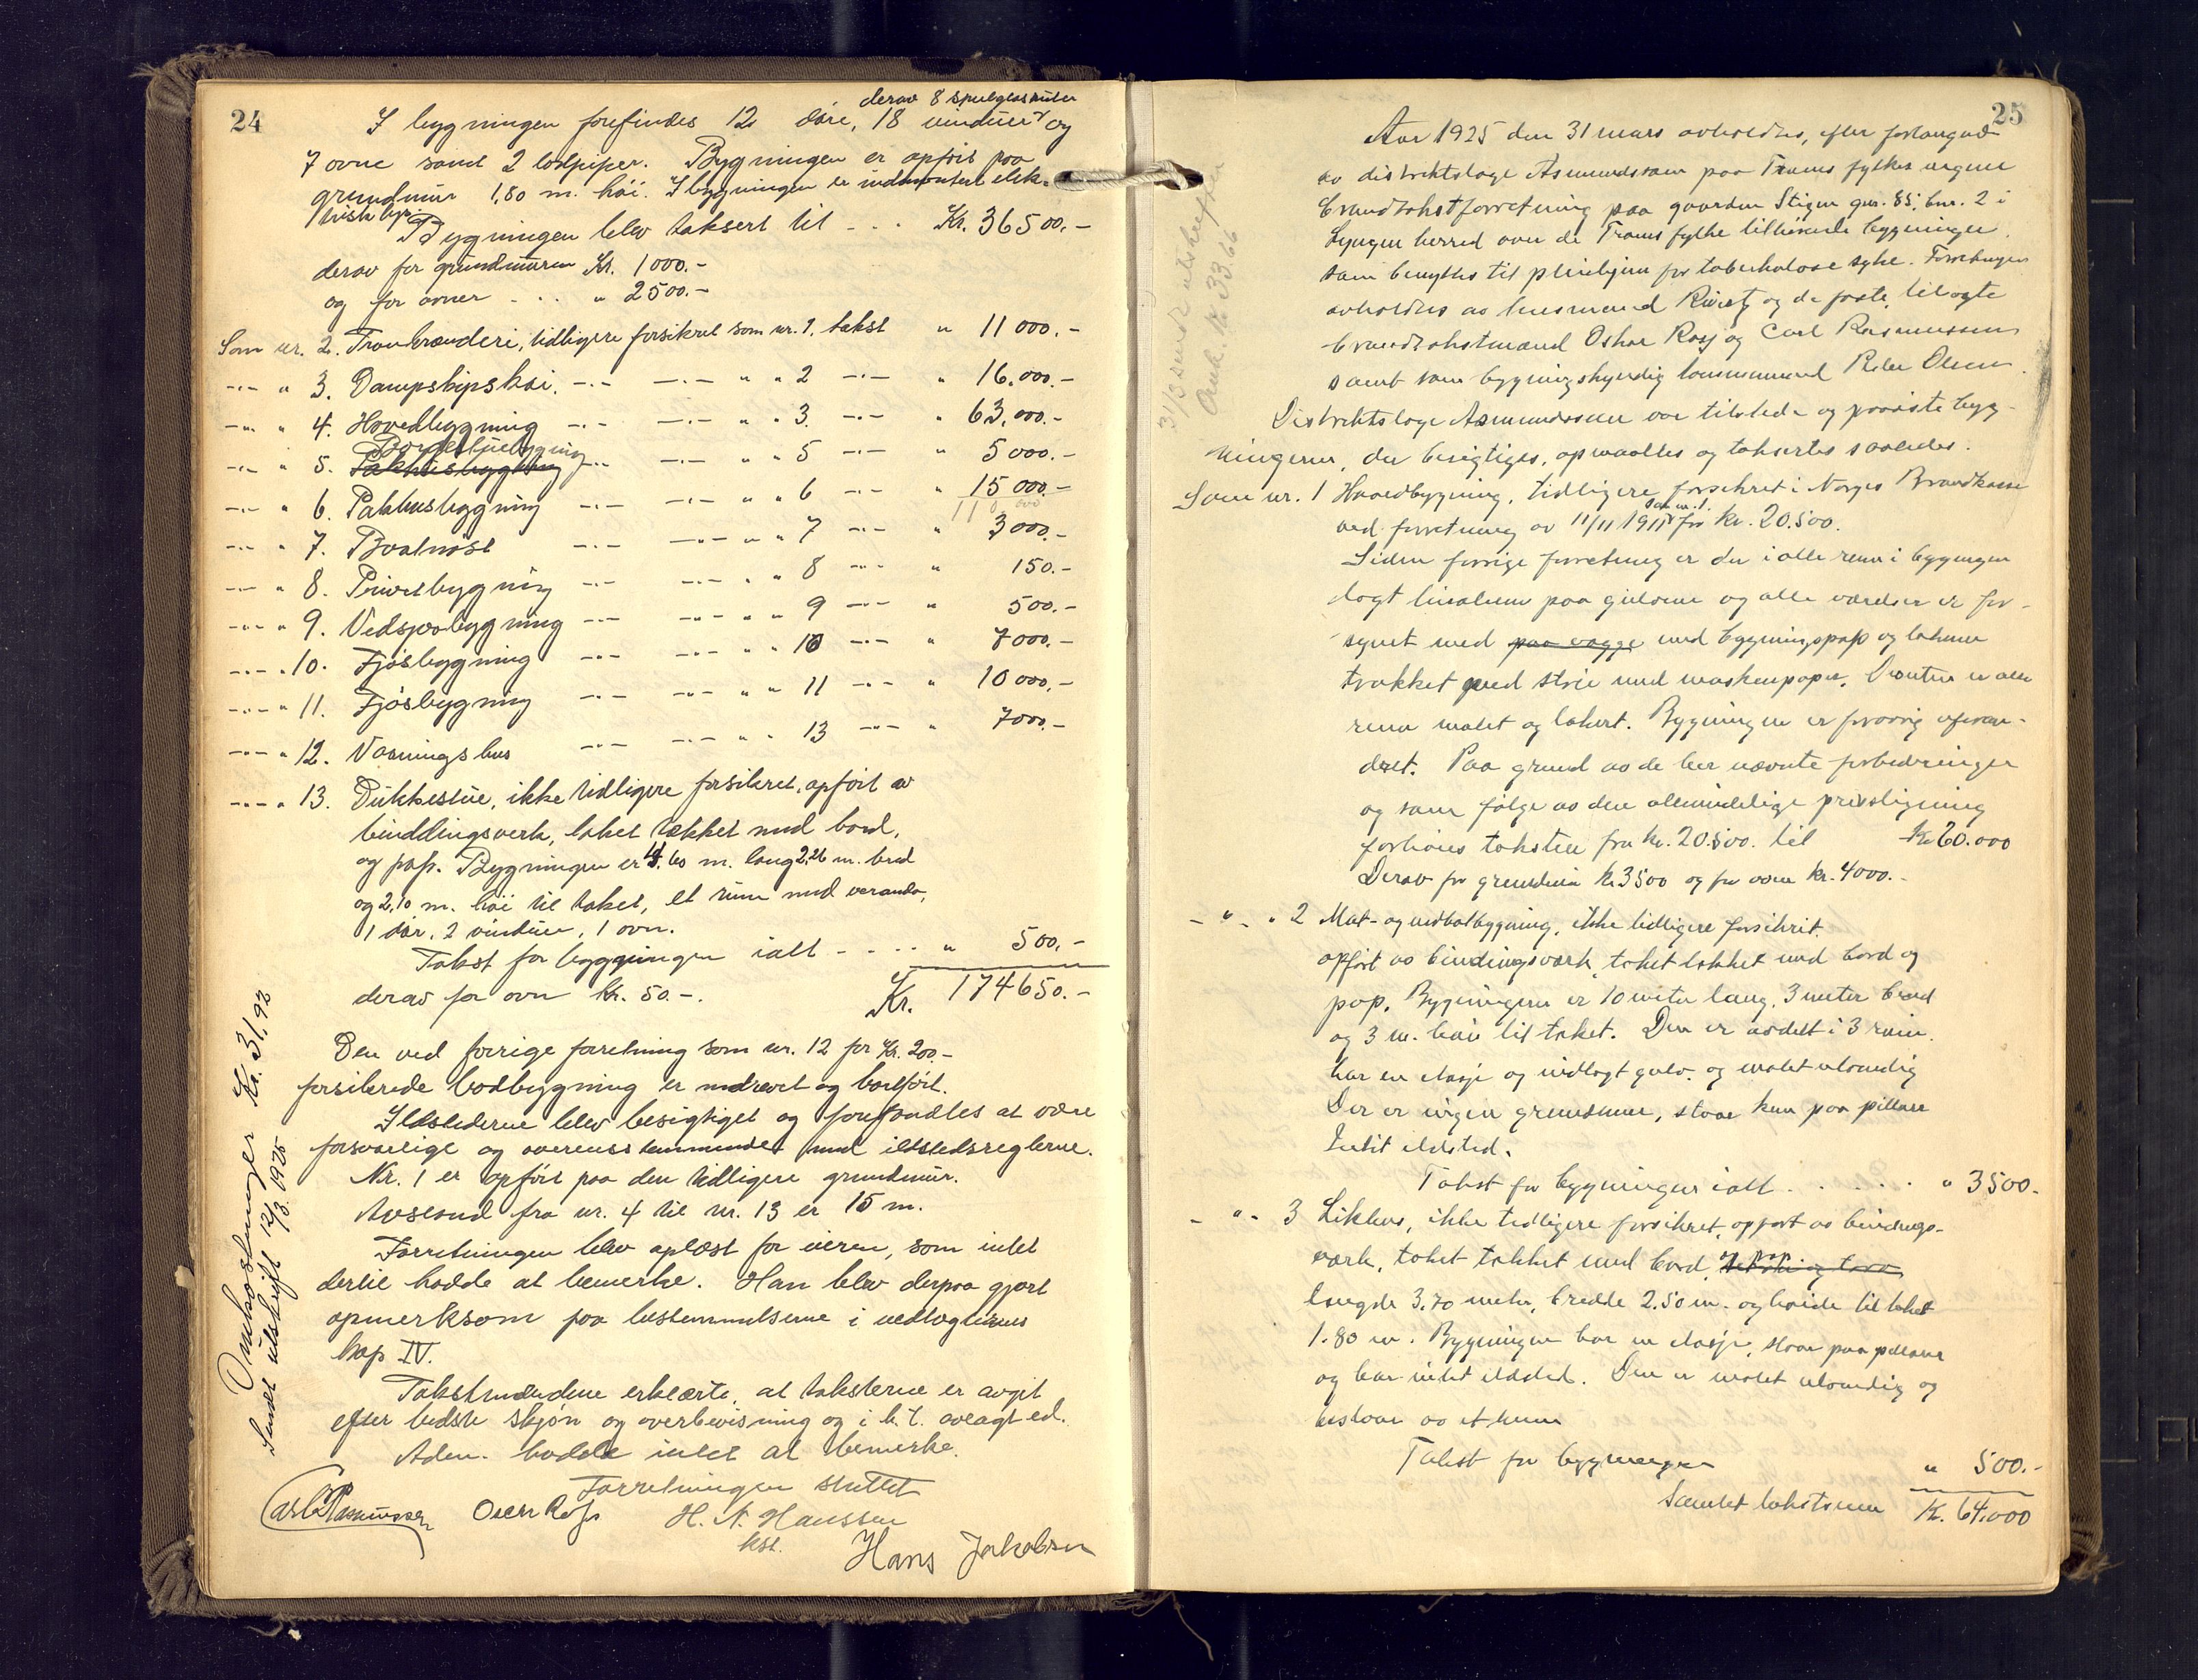 24
derav 8 speilglasruter
I bygningen forefindes 12 döre, 18 vinduer og
7 ovne samt 2 lodpiper. Bygningen er opfört paa
grundmur 1,80 m. höi. I bygningen er indmontert elek-
trisk lys.
Bygningen blev taksert til - . . Kr. 36500,-
derav for grundmuren Kr. 1000.-
og for ovner - . . " 2500.-
Som nr. 2. Tranbrænderi, tidligere forsikret som nr. 1. takst " 11000.-
-"- " 3. Dampskipskai. -"- -"- " " 2 -"- " 16.000.-
-"- " 4. Hovedbygning -"- -"- " " 3 -"- " 63,000.-
Borgestuebygning
-"- " 5. -"- -"- " " 5 -"- " 5000.-
-"- " 6. Pakhusbygning -"- -"- " " 6 -"- " 15000.-
-"- " 7. Baatnöst -"- -"- " " 7 -"- " 3000.-
-"- " 8. Privetbygning -"- -"- " " 8 -"- " 150.-
-"- " 9. Vedsjaabygning -"- -"- " " 9 -"- " 500.-
-"- " 10. Fjösbygning -"- -"- " " 10 -"- " 7000.-
-"- " 11. Fjösbygning -"- -"- " " 11 -"- " 10000.-
-"- " 12. Vaaningshus -"- -"- " " 13 -"- " 7000.-
-"- " 13. Dukkestue, ikke tidligere forsikret, opfört av
binddingsverk, taket tækket med bord,
og pap. Bygningen er 4.60 m. lang 2,26 m. bred
og 2,10 m. höi til taket, et rum med veranda,
1 dör, 2 vinduer, 1 ovn.
Takst for bygningen ialt - - . . " 500,-
derav for ovn Kr. 50.-. Kr. 174650.-
Den ved forrige forretning som nr. 12 for Kr. 200.-
forsikrede bodbygning er nedrevet og bortfört.
Ildstederne blev besigtiget og forefandtes at være
forsvarlige og overensstemmende med ildstedsreglerne.
Nr. 1 er opfört paa den tidligere grundmur.
Avstand fra nr. 4 til nr. 13 er 15 m.
Forretningen blev oplæst for eieren, som intet
dertil hadde at bemerke. Han blev derpaa gjort
opmerksom paa bestemmelserne i vedtægternes
kap IV.
Takstmændene erklærte, at taksterne er avgit
efter bedste skjön og overbevisning og i h. t. avlagt ed.
Adm. hadde intet at bemerke.
Forretningen sluttet
Carl Rasmussen H. N. Hanssen
kst. Hans Jakobsen
Omkostninger Kr. 31,92
Sendt utskrift 12/3 1925
25
Aar 1925 den 31 mars avholdtes, efter forlangende
av distriktslæge Asmundssen paa Troms fylkes vegne
brandtakstforretning paa gaarden Stigen gnr. 85, bnr. 2 i
Lyngen herred over de Troms fylke tilhörende bygninger
som benyttes til pleiehjem for tuberkuløse syke. Forretningen
avholdtes av lensmand og de faste, tilsagte
brandtakstmænd Oskar og Carl Rasmussen
samt som bygningskyndig Peder Olsen.
Distriktslæge Asmundssen var tilstede og paaviste byg-
ningerne, der besigtiges, opmaaltes og taksertes saaledes.
Som nr. 1 Hovedbygning, tidligere forsikret i Norges Brandkasse
som nr. 1.
ved forretning av 11/11 1911 for kr. 20.500.
Siden forrige forretning er der i alle rum i bygningen
lagt linoleum paa gulvene og alle værelser er for-
synet med paa vægge med bygningspap og takene
trækket med strie med maskinpapir. Desuten er alle
rum malet og lakert. Bygningen er forövrig uforan-
dret. Paa grund av de her nævnte forbedringer
og som følge av den almindelige prisstigning
forhöies taksten fra kr. 20.500. til Kr. 60.000
Derav for grundmur kr. 3500 og for ovne kr. 4000.-
- " - " 2 Mat- og vedbodbygning, ikke tidligere forsikret.
opfört av bindingsværk, taket tækket med bord og
pap. Bygningen er 10 meter lang, 3 meter bred
og 3 m. höi til taket. Den er avdelt i 3 rum.
har en etasje og indlagt gulv og malet utvendig
Der er ingen grundmur, staar kun paa pillare
Intet ildsted.
Takst for bygningen ialt . . . . . " 3500.
- " - 3 Likhus, ikke tidligere forsikret, opført av bindings-
værk, taket tækket med bord, og pap
længde 3.70 meter, bredde 2.50 m. og höide til taket
1.80 m. Bygningen har en etasje, staar paa pillarer
og har intet ildsted. Den er malet utvendig og
bestaar av et rum
Takst for bygningen " 500.-
Samlet takstsum Kr. 64.000
31/3 sendt utskrift
Omk. kr. 33.66